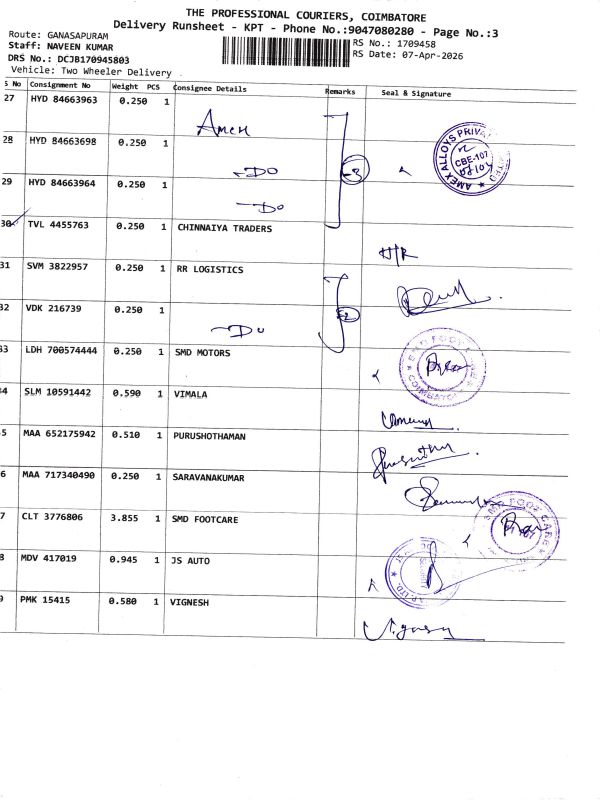 THE PROFESSIONAL COURIERS, COIMBATORE
Delivery Runsheet - KPT - Phone No.:9047080280 - Page No.:3
Route: GANASAPURAM
RS No.: 1709458
Staff: NAVEEN KUMAR
RS Date: 07-Apr-2026
DRS No.: DCJB170945803
Vehicle: Two Wheeler Delivery
S No Consignment No Weight PCS Consignee Details Remarks Seal & Signature
27 HYD 84663963 0.250 1 Amex
28 HYD 84663698 0.250 1 -Do 3
29 HYD 84663964 0.250 1 -Do
AMEX ALLOYS PRIVATE LIMITED
CBE-107
30 TVL 4455763 0.250 1 CHINNAIYA TRADERS
31 SVM 3822957 0.250 1 RR LOGISTICS
32 VDK 216739 0.250 1 -Do 2
33 LDH 700574444 0.250 1 SMD MOTORS
COIMBATORE
34 SLM 10591442 0.590 1 VIMALA
5 MAA 652175942 0.510 1 PURUSHOTHAMAN
6 MAA 717340490 0.250 1 SARAVANAKUMAR
7 CLT 3776806 3.855 1 SMD FOOTCARE
SMD FOOT CARE
8 MDV 417019 0.945 1 JS AUTO
9 PMK 15415 0.580 1 VIGNESH
Vignesh